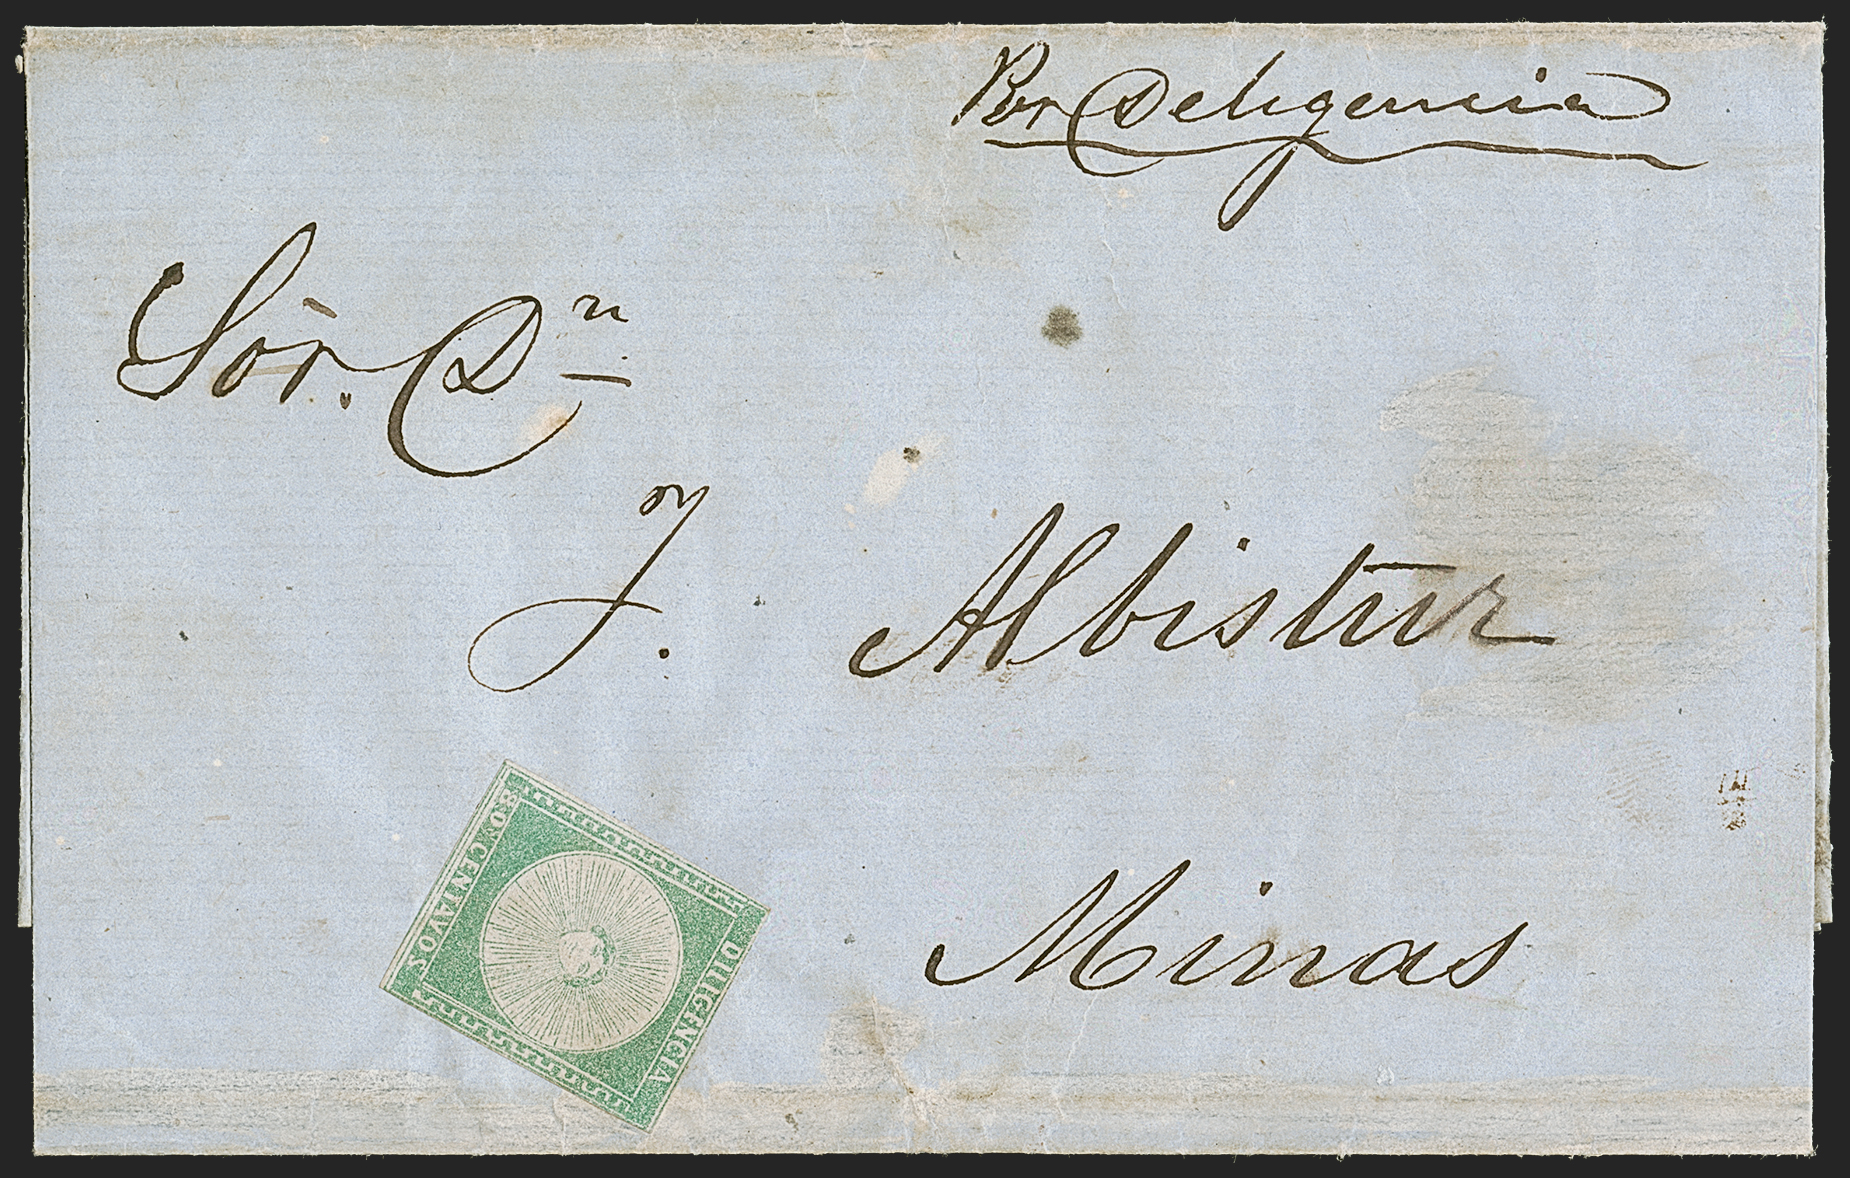 Por Deligencia
Sōr. Dn
J. Albistur
Minas
DILIGENCIA
80 CENTAVOS